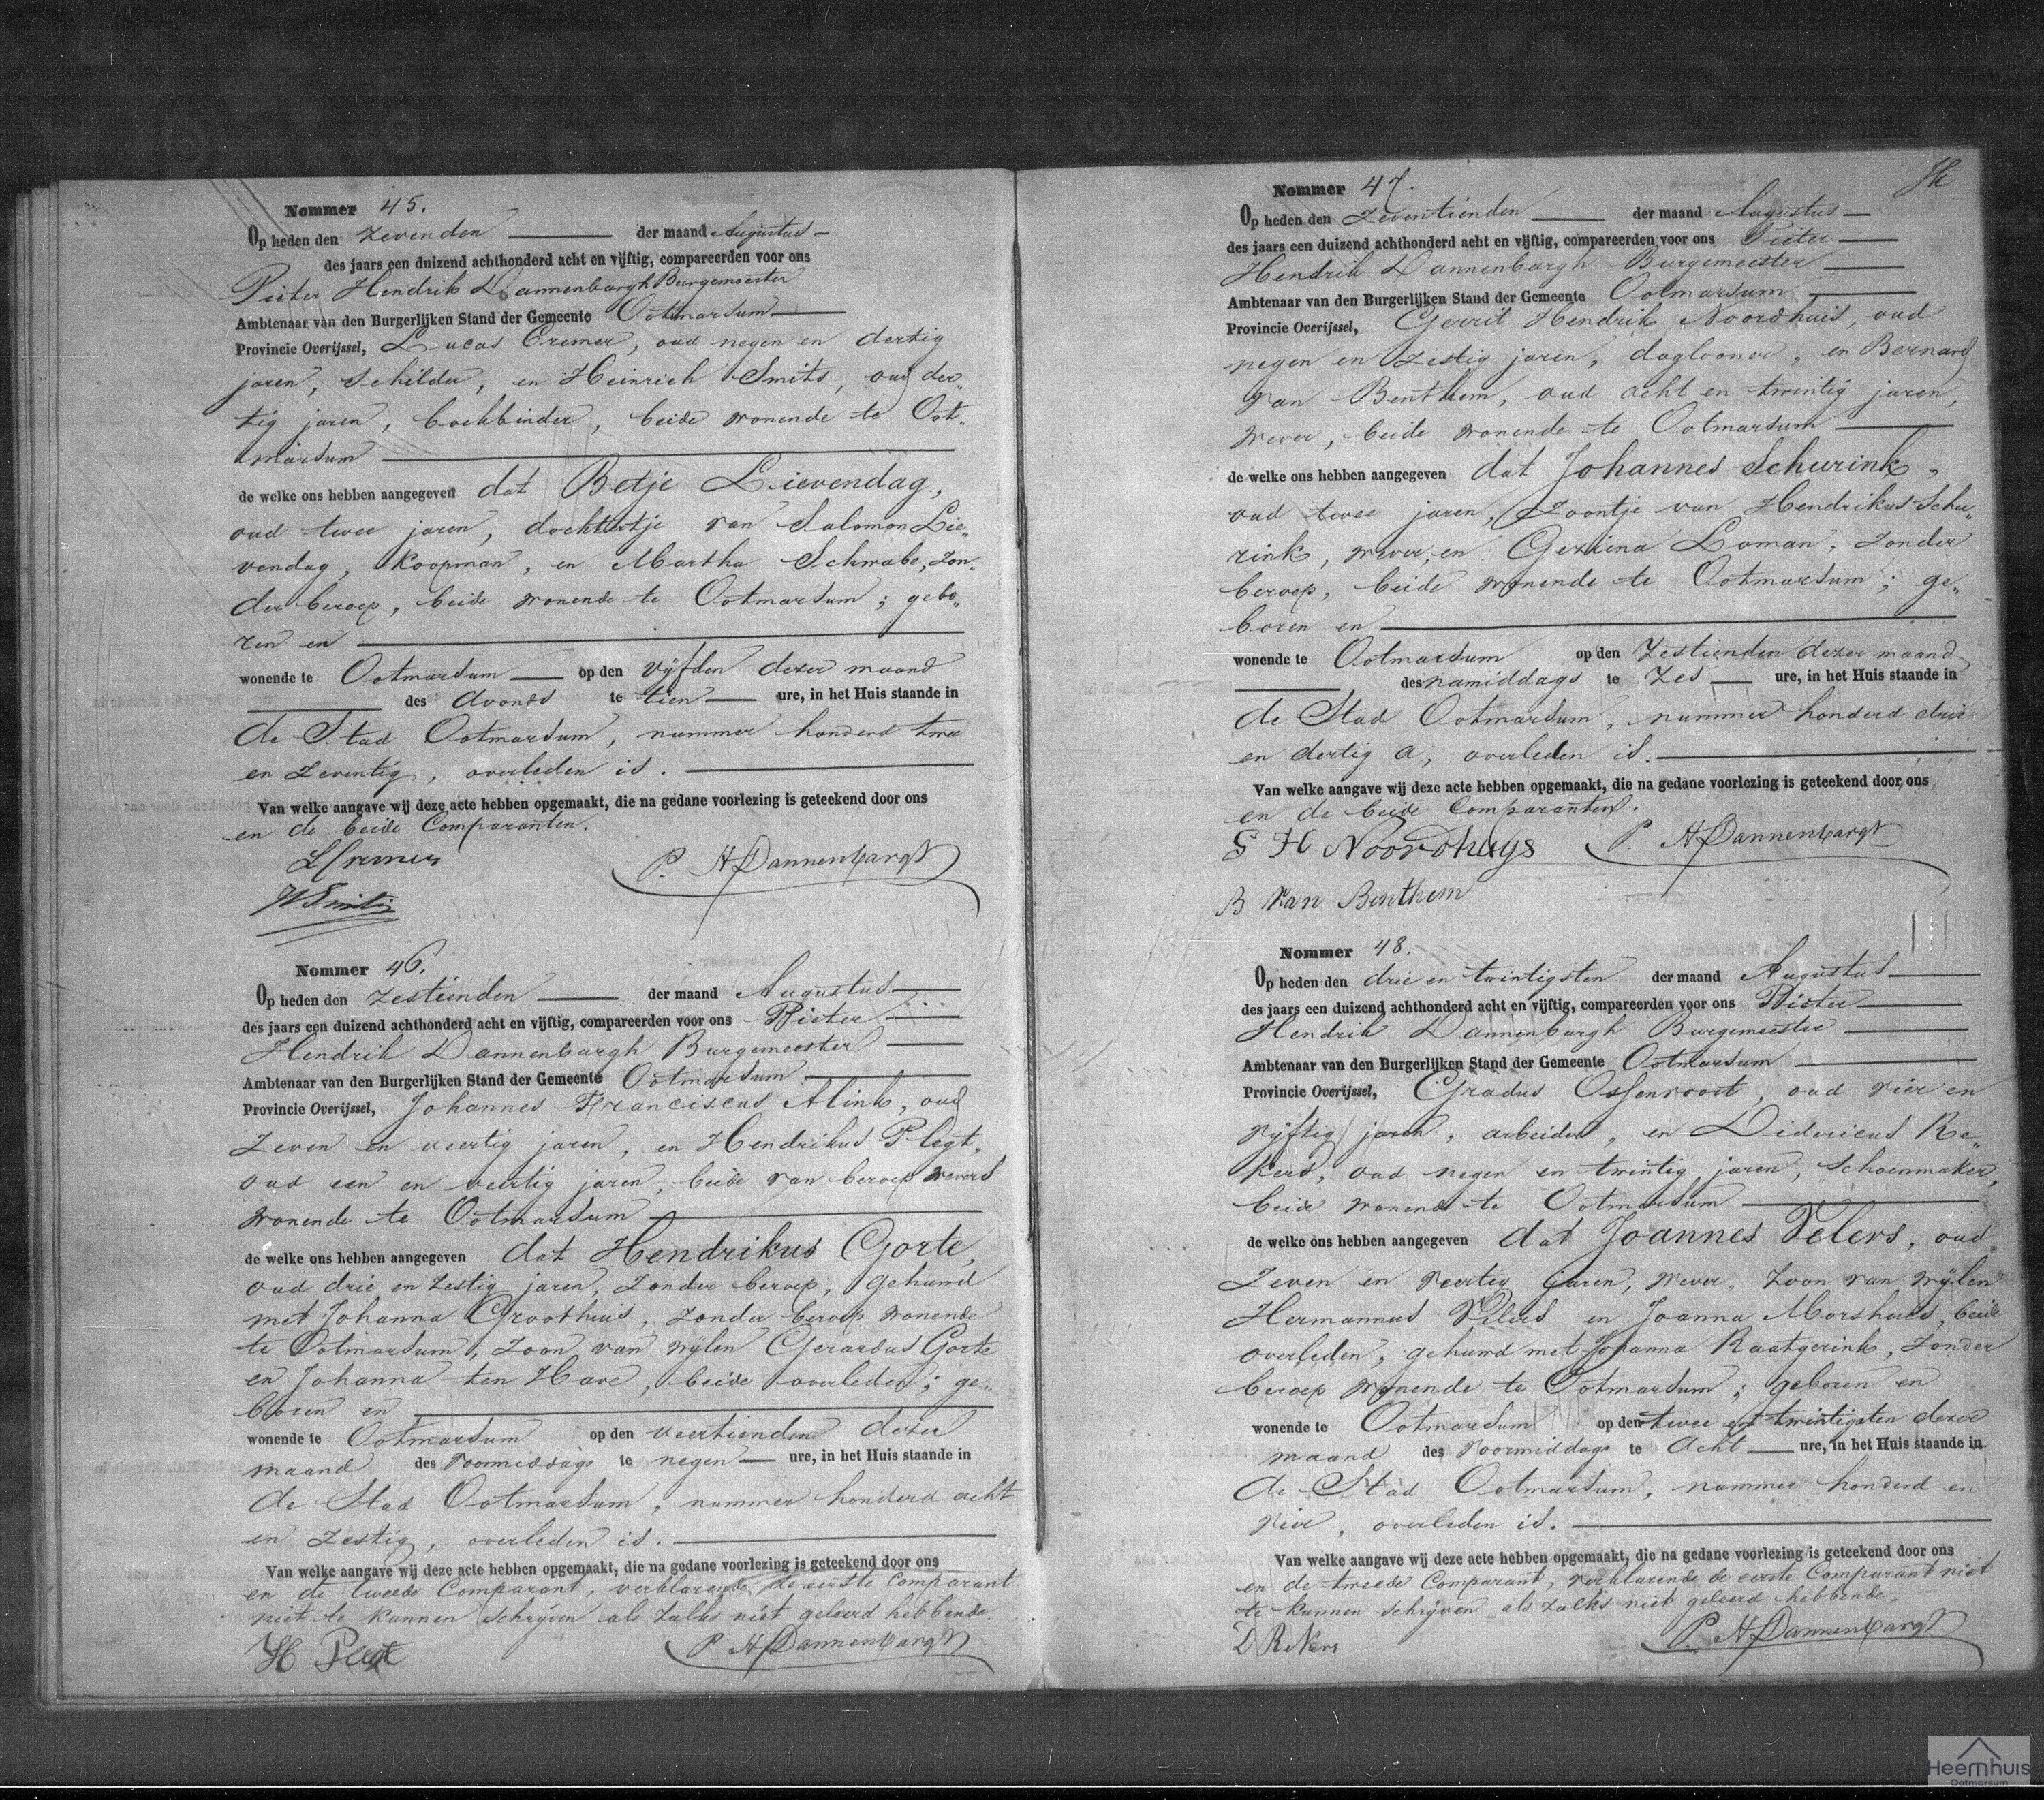 Nommer 45.
Op heden den zevenden der maand Augustus
des jaars een duizend achthonderd acht en vijftig, compareerden voor ons
Pieter Hendrik Dannenbargh Burgemeester
Ambtenaar van den Burgerlijken Stand der Gemeente Ootmarsum
Provincie Overijssel, Lucas Cremer, oud negen en dertig
jaren, Schilder, en Heinrich Smits, oud der„
tig jaren, boekbinder, beide wonende te Oot„
marsum
de welke ons hebben aangegeven dat Betje Lievendag,
oud twee jaren, dochtertje van Salomon Lie„
vendag, Koopman, en Martha Schwabe, zon„
der beroep, beide wonende te Ootmarsum; gebo„
ren en
wonende te Ootmarsum op den vijfden dezer maand
des avonds te tien ure, in het Huis staande in
de Stad Ootmarsum, nummer honderd twee
en zeventig, overleden is.
Van welke aangave wij deze acte hebben opgemaakt, die na gedane voorlezing is geteekend door ons
en de beide Comparanten.
L Cremer
P. H Dannenbargh
H Smits
Nommer 46.
Op heden den zestienden der maand Augustus
des jaars een duizend achthonderd acht en vijftig, compareerden voor ons Pieter
Hendrik Dannenbargh Burgemeester
Ambtenaar van den Burgerlijken Stand der Gemeente Ootmarsum
Provincie Overijssel, Johannes Franciscus Alink, oud
zeven en veertig jaren, en Hendrikus Plegt,
oud een en veertig jaren, beide van beroep wevers
wonende te Ootmarsum
de welke ons hebben aangegeven dat Hendrikus Gorte,
oud drie en zestig jaren, zonder beroep, gehuwd
met Johanna Groothuis, zonder beroep wonende
te Ootmarsum, zoon van wijlen Gerardus Gorte
en Johanna ten Have, beide overleden; ge„
boren en
wonende te Ootmarsum op den veertienden dezer
maand des voormiddags te negen ure, in het Huis staande in
de Stad Ootmarsum, nummer honderd acht
en zestig, overleden is.
Van welke aangave wij deze acte hebben opgemaakt, die na gedane voorlezing is geteekend door ons
en de tweede Comparant, verklarende de eerste Comparant
niet te kunnen schrijven als zulks niet geleerd hebbende.
H Plegt
P. H Dannenbargh
Nommer 47.
Op heden den zeventienden der maand Augustus
des jaars een duizend achthonderd acht en vijftig, compareerden voor ons Pieter
Hendrik Dannenbargh Burgemeester
Ambtenaar van den Burgerlijken Stand der Gemeente Ootmarsum
Provincie Overijssel, Gerrit Hendrik Noordhuis, oud
negen en zestig jaren, daglooner, en Bernard
van Benthem, oud acht en twintig jaren,
wever, beide wonende te Ootmarsum
de welke ons hebben aangegeven dat Johannes Schurink,
oud twee jaren, zoontje van Hendrikus Schu„
rink, wever, en Geziena Loman, zonder
beroep, beide wonende te Ootmarsum; ge„
boren en
wonende te Ootmarsum op den zestienden dezer maand
des namiddags te zes ure, in het Huis staande in
de Stad Ootmarsum, nummer honderd drie
en dertig a, overleden is.
Van welke aangave wij deze acte hebben opgemaakt, die na gedane voorlezing is geteekend door ons
en de beide Comparanten.
G H Noordhuys
P. H Dannenbargh
B van Benthem
Nommer 48.
Op heden den drie en twintigsten der maand Augustus
des jaars een duizend achthonderd acht en vijftig, compareerden voor ons Pieter
Hendrik Dannenbargh Burgemeester
Ambtenaar van den Burgerlijken Stand der Gemeente Ootmarsum
Provincie Overijssel, Gradus Ossenvoort, oud vier en
vijftig jaren, arbeider, en Didericus Re„
kers, oud negen en twintig jaren, Schoenmaker,
beide wonende te Ootmarsum
de welke ons hebben aangegeven dat Joannes Velers, oud
zeven en veertig jaren, wever, zoon van wijlen
Hermannus Velers en Joanna Morshuis, beide
overleden, gehuwd met Johanna Raatgerink, zonder
beroep wonende te Ootmarsum; geboren en
wonende te Ootmarsum op den twee en twintigsten dezer
maand des voormiddags te acht ure, in het Huis staande in
de Stad Ootmarsum, nummer honderd en
vier, overleden is.
Van welke aangave wij deze acte hebben opgemaakt, die na gedane voorlezing is geteekend door ons
en de tweede Comparant, verklarende de eerste Comparant niet
te kunnen schrijven als zulks niet geleerd hebbende.
D Rekers
P. H Dannenbargh
Heemhuis
Ootmarsum